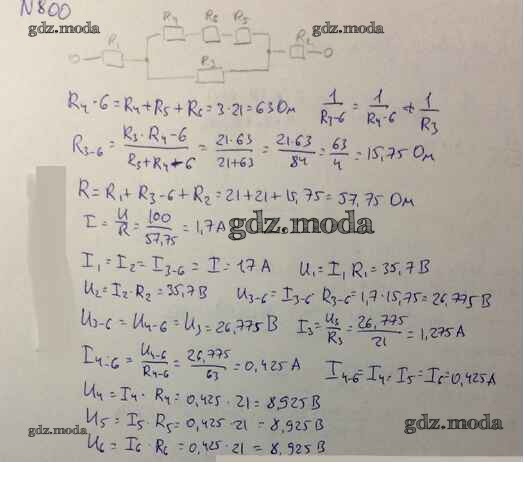 N800
gdz.moda
gdz.moda
R4 R6 R5
R1 R2
R3
R4-6 = R4 + R5 + R6 = 3·21 = 63 Ом 1/R3-6 = 1/R4-6 + 1/R3
R3-6 = R3·R4-6/R3+R4-6 = 21·63/21+63 = 21·63/84 = 63/4 = 15,75 Ом
R = R1 + R3-6 + R2 = 21 + 21 + 15,75 = 57,75 Ом
I = U/R = 100/57,75 = 1,7 А
gdz.moda
I1 = I2 = I3-6 = I = 17 А U1 = I1 R1 = 35,7 В
U2 = I2·R2 = 35,7 В U3-6 = I3-6 R3-6 = 1,7·15,75 = 26,775 В
U3-6 = U4-6 = U3 = 26,775 В I3 = U3/R3 = 26,775/21 = 1,275 А
I4-6 = U4-6/R4-6 = 26,775/63 = 0,425 А I4-6 = I4 = I5 = I6 = 0,425 А
U4 = I4·R4 = 0,425·21 = 8,925 В
U5 = I5·R5 = 0,425·21 = 8,925 В
gdz.moda
gdz.moda
U6 = I6·R6 = 0,425·21 = 8,925 В